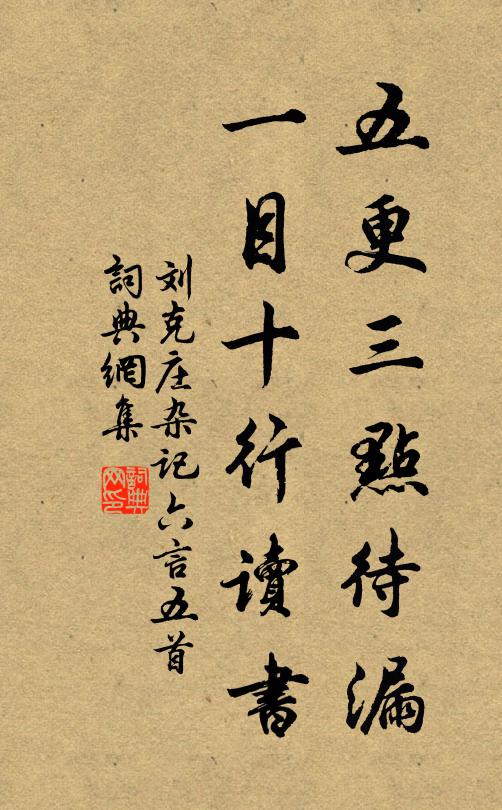 五更三點待漏
一目十行讀書
刘克庄杂记六言五首
詞典網集
詞典网印